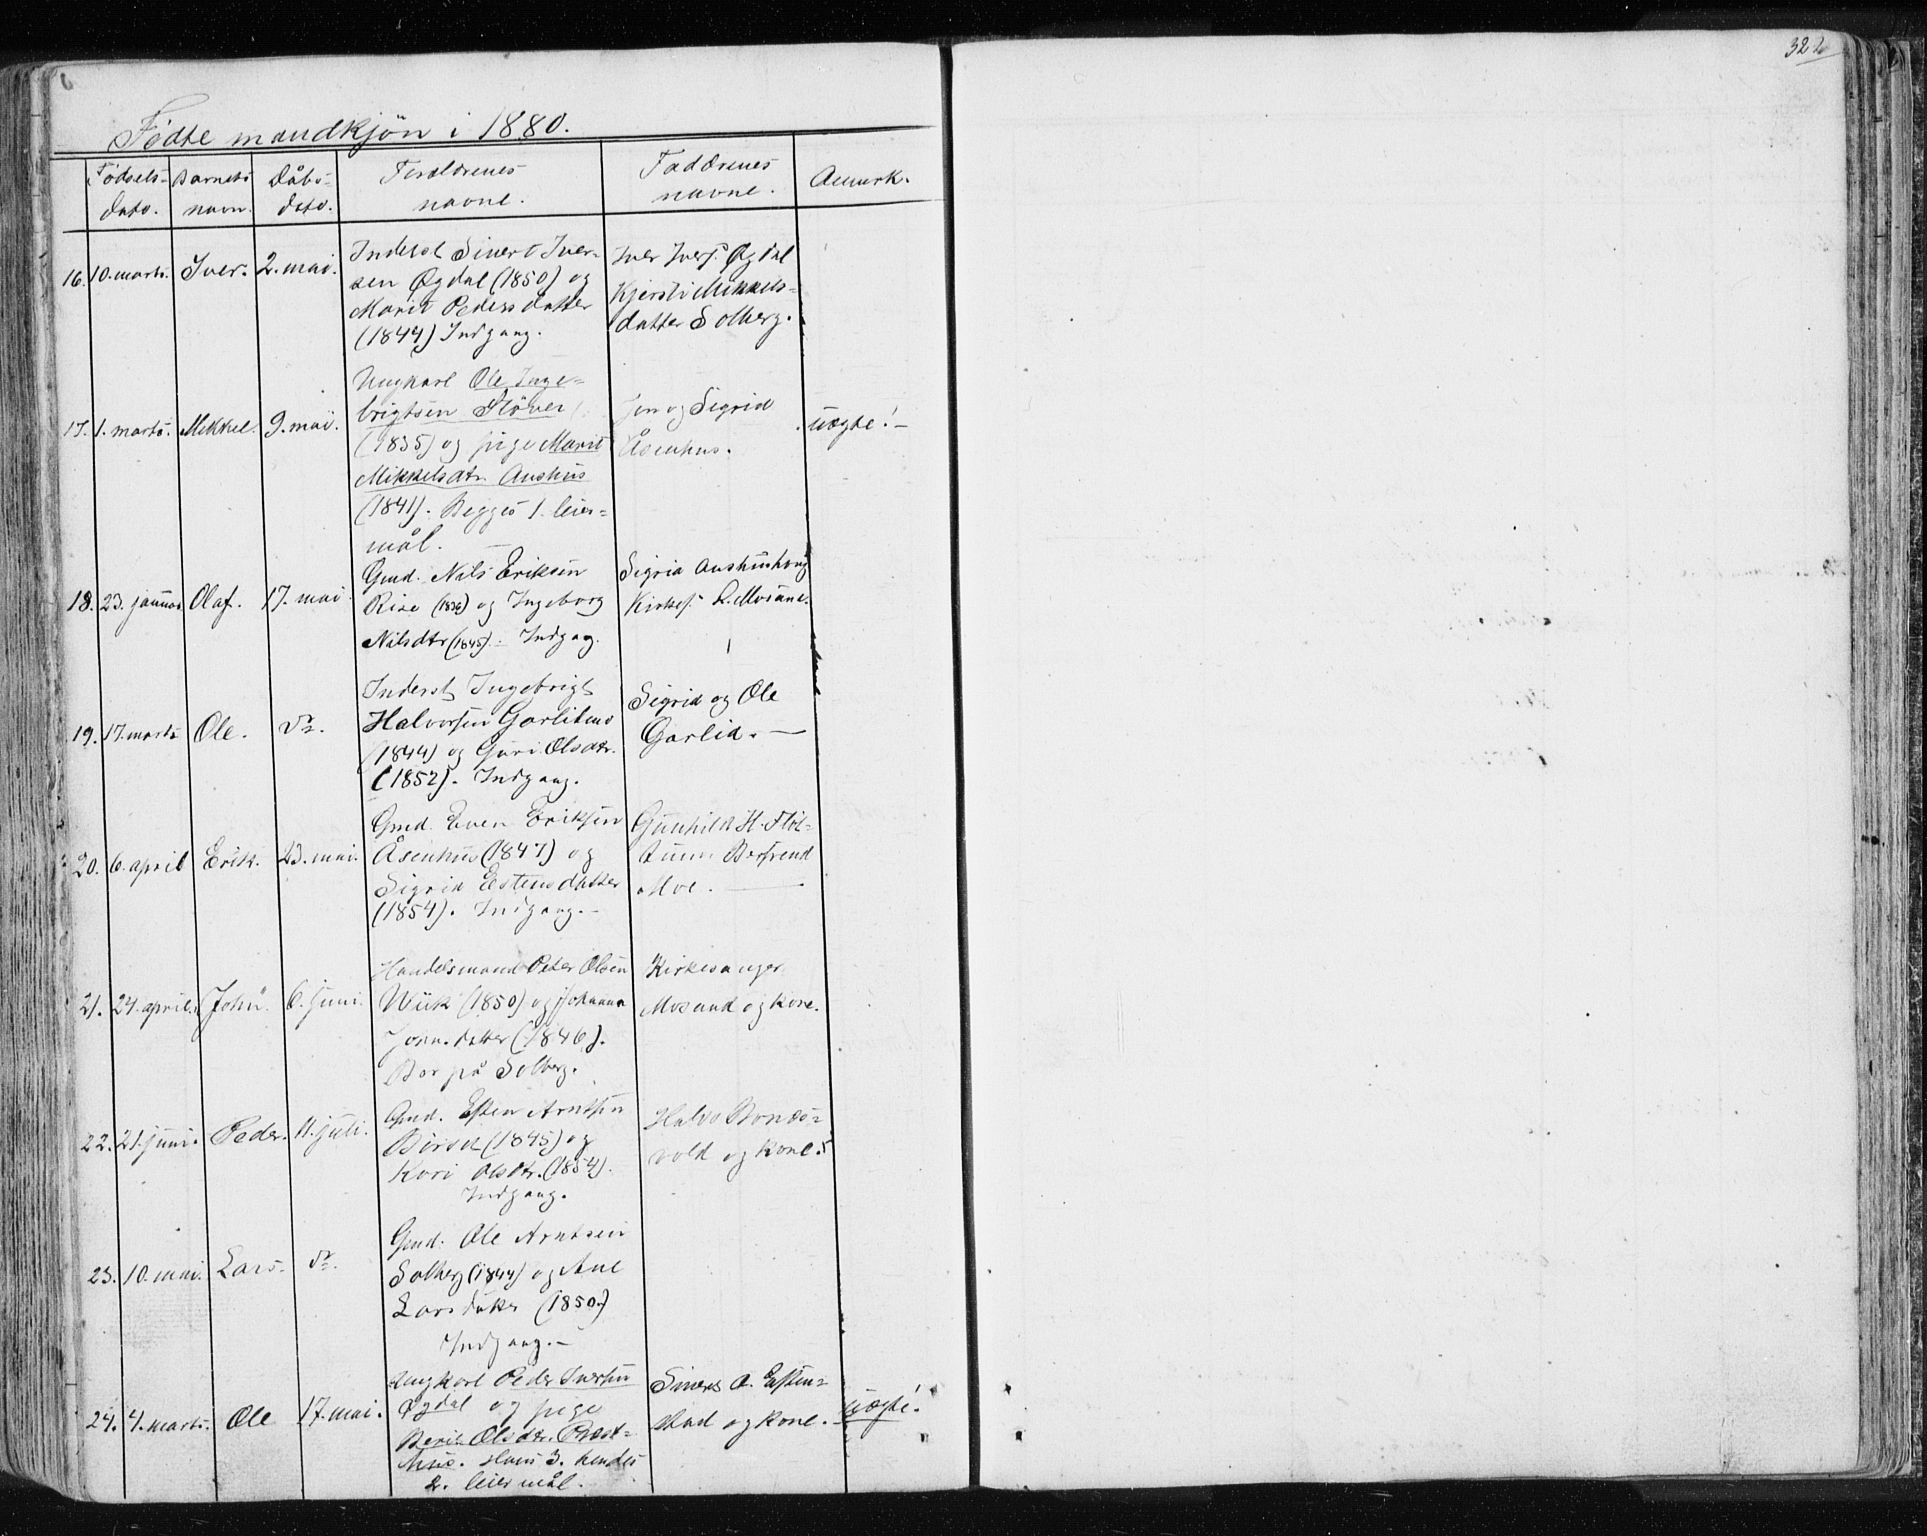 322
Fødte mandkjön i 1880.
Fødsels- dato. Barnets navn. Dåbs- dato. Forældrenes navne. Faddrenes navne. Anmerk.
16. 10. marts. Iver. 2. mai.
Inderst Sivert Iver-
sen Øgdal (1850) og
Marit Pedersdatter
(1844) Indgang.
Iver Ivers. Øgdal
Kjersti Mikkels-
datter Solberg.
17. 1. marts. Mikkel. 9. mai.
Ungkarl Ole Inge-
brigtsen Fløver
(1835) og pige Marit
Mikkelsdtr. Aushus
(1841). Begges 1. leier-
mål.
Jon og Sigrid
Åsenhus.
uægte! —
18. 23. januar Olaf. 17. mai.
Gmd. Nils Eriksen
Rise og Ingeborg
Nilsdtr (1845). – Indgag.
Sigrid Aushushaug
Kirkes. L. Mosane.
19. 17. marts Ole. do.
Inderst Ingebrigt
Halvorsen Garlitmo
(1844) og Guri Olsdtr.
(1852). Indgang.
Sigrid og Ole
Garlid. —
20. 6. april Erik. 23. mai.
Gmd. Even Eriksen
Åsenhus (1847) og
Sigrid Estensdatter
(1854). Indgang. –
Gunhild H. Fløt-
tum Berfrend
Moe. —
21. 24. april. John. 6. juni.
Handelsmand Peter Olsen
Wiik (1850) og Johanna
Jonsdatter (1846).
Bor på Solberg.
Kirkesanger
Mosand og kone.
22. 21. juni. Peder. 11. juli.
Gmd. Esten Arntsen
Børset (1845) og
Kari Olsdtr. (1854).
Indgang.
Halvo Bonæs-
vold og kone.
23. 10. mai. Lars. do.
Gmd. Ole Arntsen
Solberg (1844) og Ane
Larsdatter (1850.)
Indgang. —
24. 4. marts. Ole 17. mai.
Ungkarl Peder Iversen
Øgdal og pige
Berit Olsdtr. Præst-
hus. Hans 3. hendes
2. leiermål.
Sivert O. Esten-
stad og kone.
uægte!